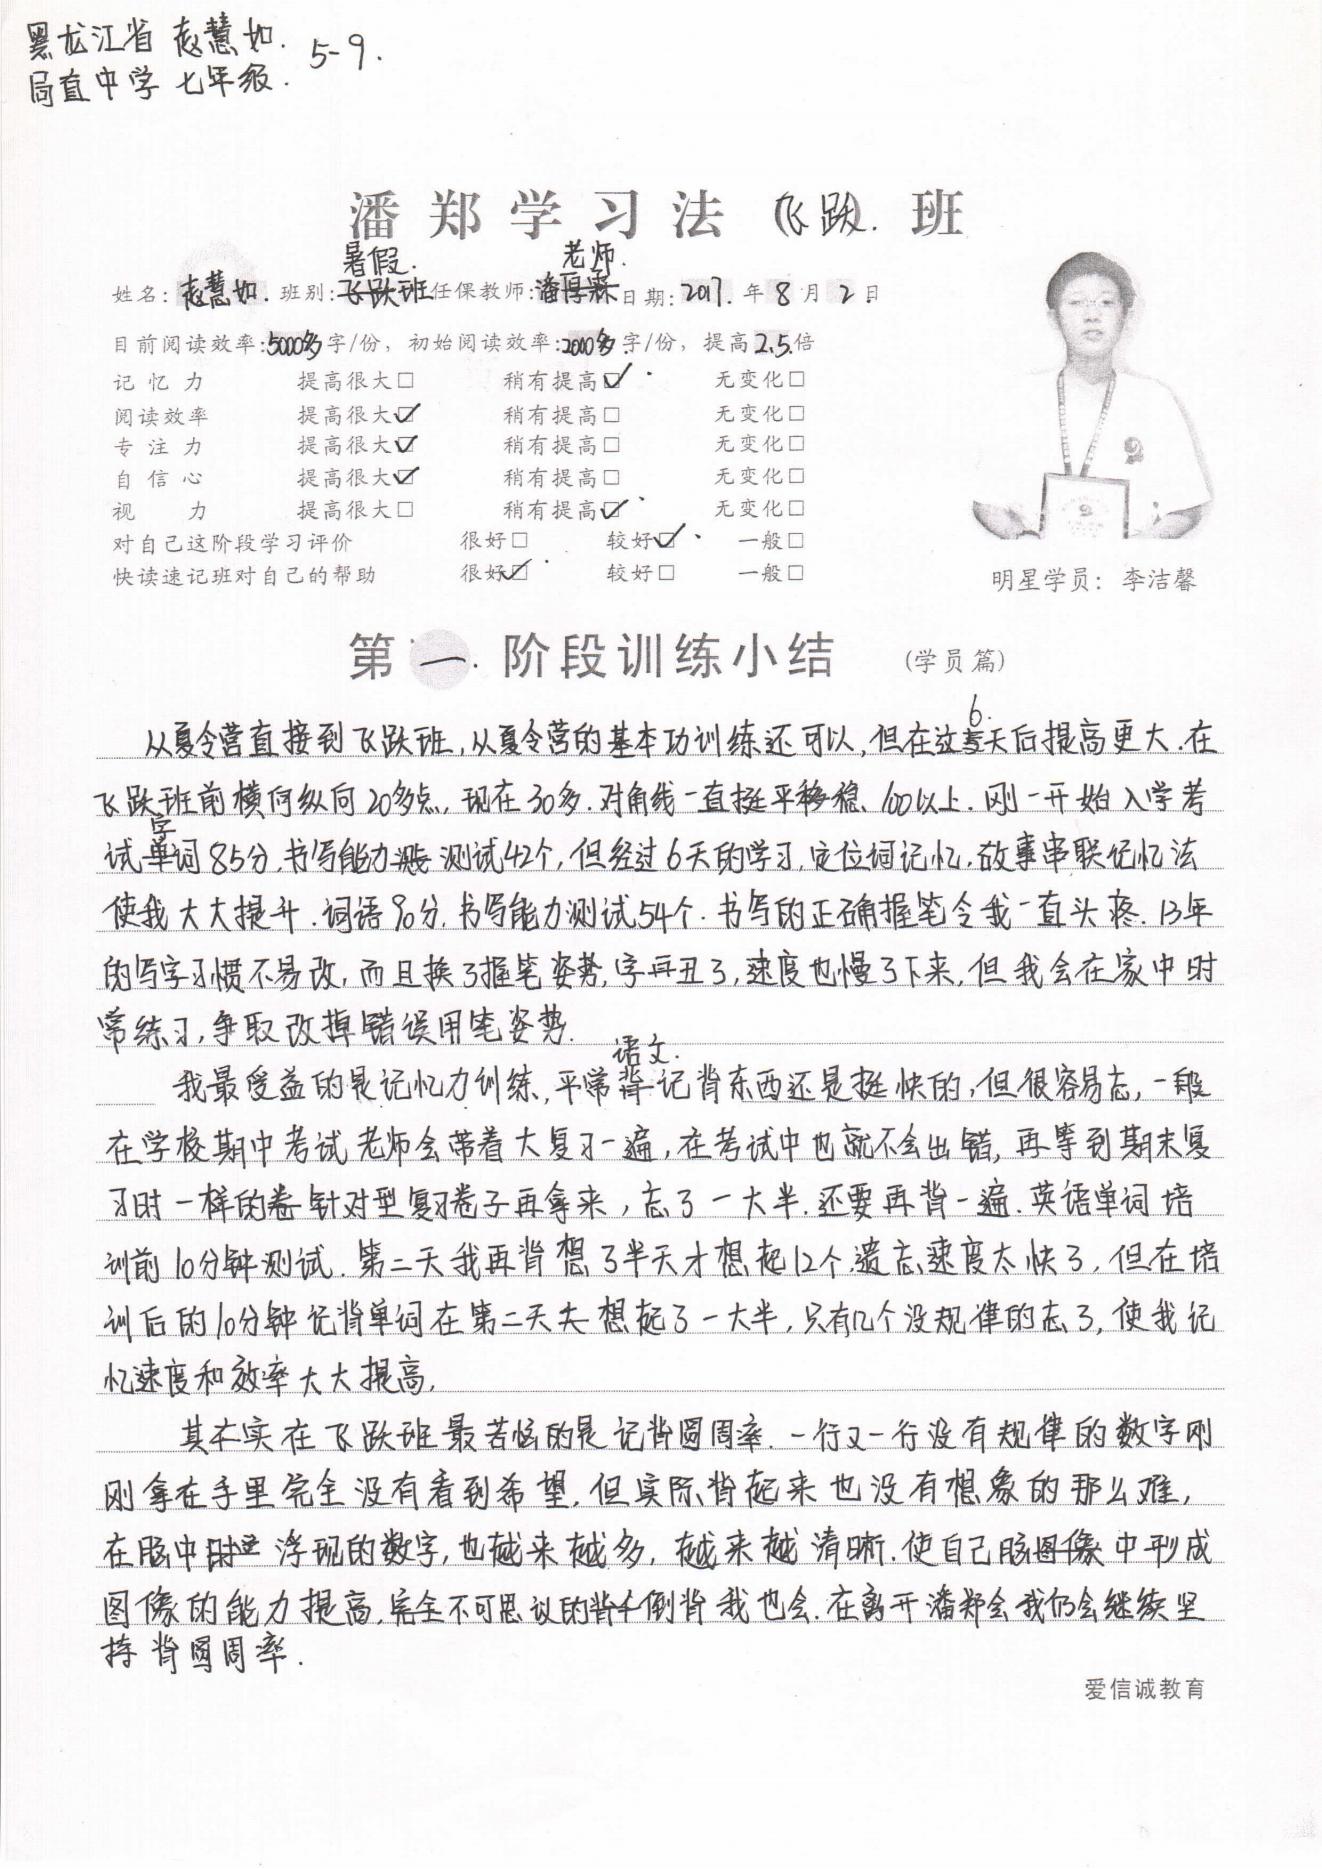 黑龙江省 赵慧如. 5-9.
局直中学 七年级.
潘郑学习法(飞跃).班
暑假. 老师.
姓名:赵慧如.班别:飞跃班任保教师:潘厚霖日期:2017.年8月2日
目前阅读效率:5000多字/份，初始阅读效率:2000多字/份，提高2.5倍
记忆力 提高很大□ 稍有提高☑ 无变化□
阅读效率 提高很大☑ 稍有提高□ 无变化□
专注力 提高很大☑ 稍有提高□ 无变化□
自信心 提高很大☑ 稍有提高□ 无变化□
视力 提高很大□ 稍有提高☑ 无变化□
对自己这阶段学习评价 很好□ 较好☑ 一般□
快读速记班对自己的帮助 很好☑ 较好□ 一般□
明星学员：李洁馨
第一.阶段训练小结 (学员篇)
从夏令营直接到飞跃班,从夏令营的基本功训练还可以,但在这6.天后提高更大.在
飞跃班前横向纵向20多点,现在30多.对角线一直挺平稳.100以上.刚一开始入学考
试字词85分,书写能力测试42个,但经过6天的学习,定位词记忆,故事串联记忆法
使我大大提升.词语90分,书写能力测试54个.书写的正确握笔令我一直头疼.13年
的写字习惯不易改,而且换了握笔姿势,字再丑了,速度也慢了下来,但我会在家中时
常练习,争取改掉错误用笔姿势.
我最受益的是记忆力训练,平常语文.记背东西还是挺快的,但很容易忘,一般
在学校期中考试老师会带着大复习一遍,在考试中也就不会出错,再等到期末复
习时一样的卷针对型复习卷子再拿来,忘了一大半.还要再背一遍.英语单词培
训前10分钟测试.第二天我再背想了半天才想起12个.遗忘速度太快了,但在培
训后的10分钟记背单词在第二天去想起了一大半,只有几个没规律的忘了,使我记
忆速度和效率大大提高,
其实在飞跃班最苦恼的是记背圆周率.一行又一行没有规律的数字刚
刚拿在手里完全没有看到希望,但实际背起来也没有想象的那么难,
在脑中浮现的数字,也越来越多,越来越清晰.使自己脑图像中形成
图像的能力提高,完全不可思议的倒背我也会.在离开潘郑会我仍会继续坚
持背圆周率.
爱信诚教育